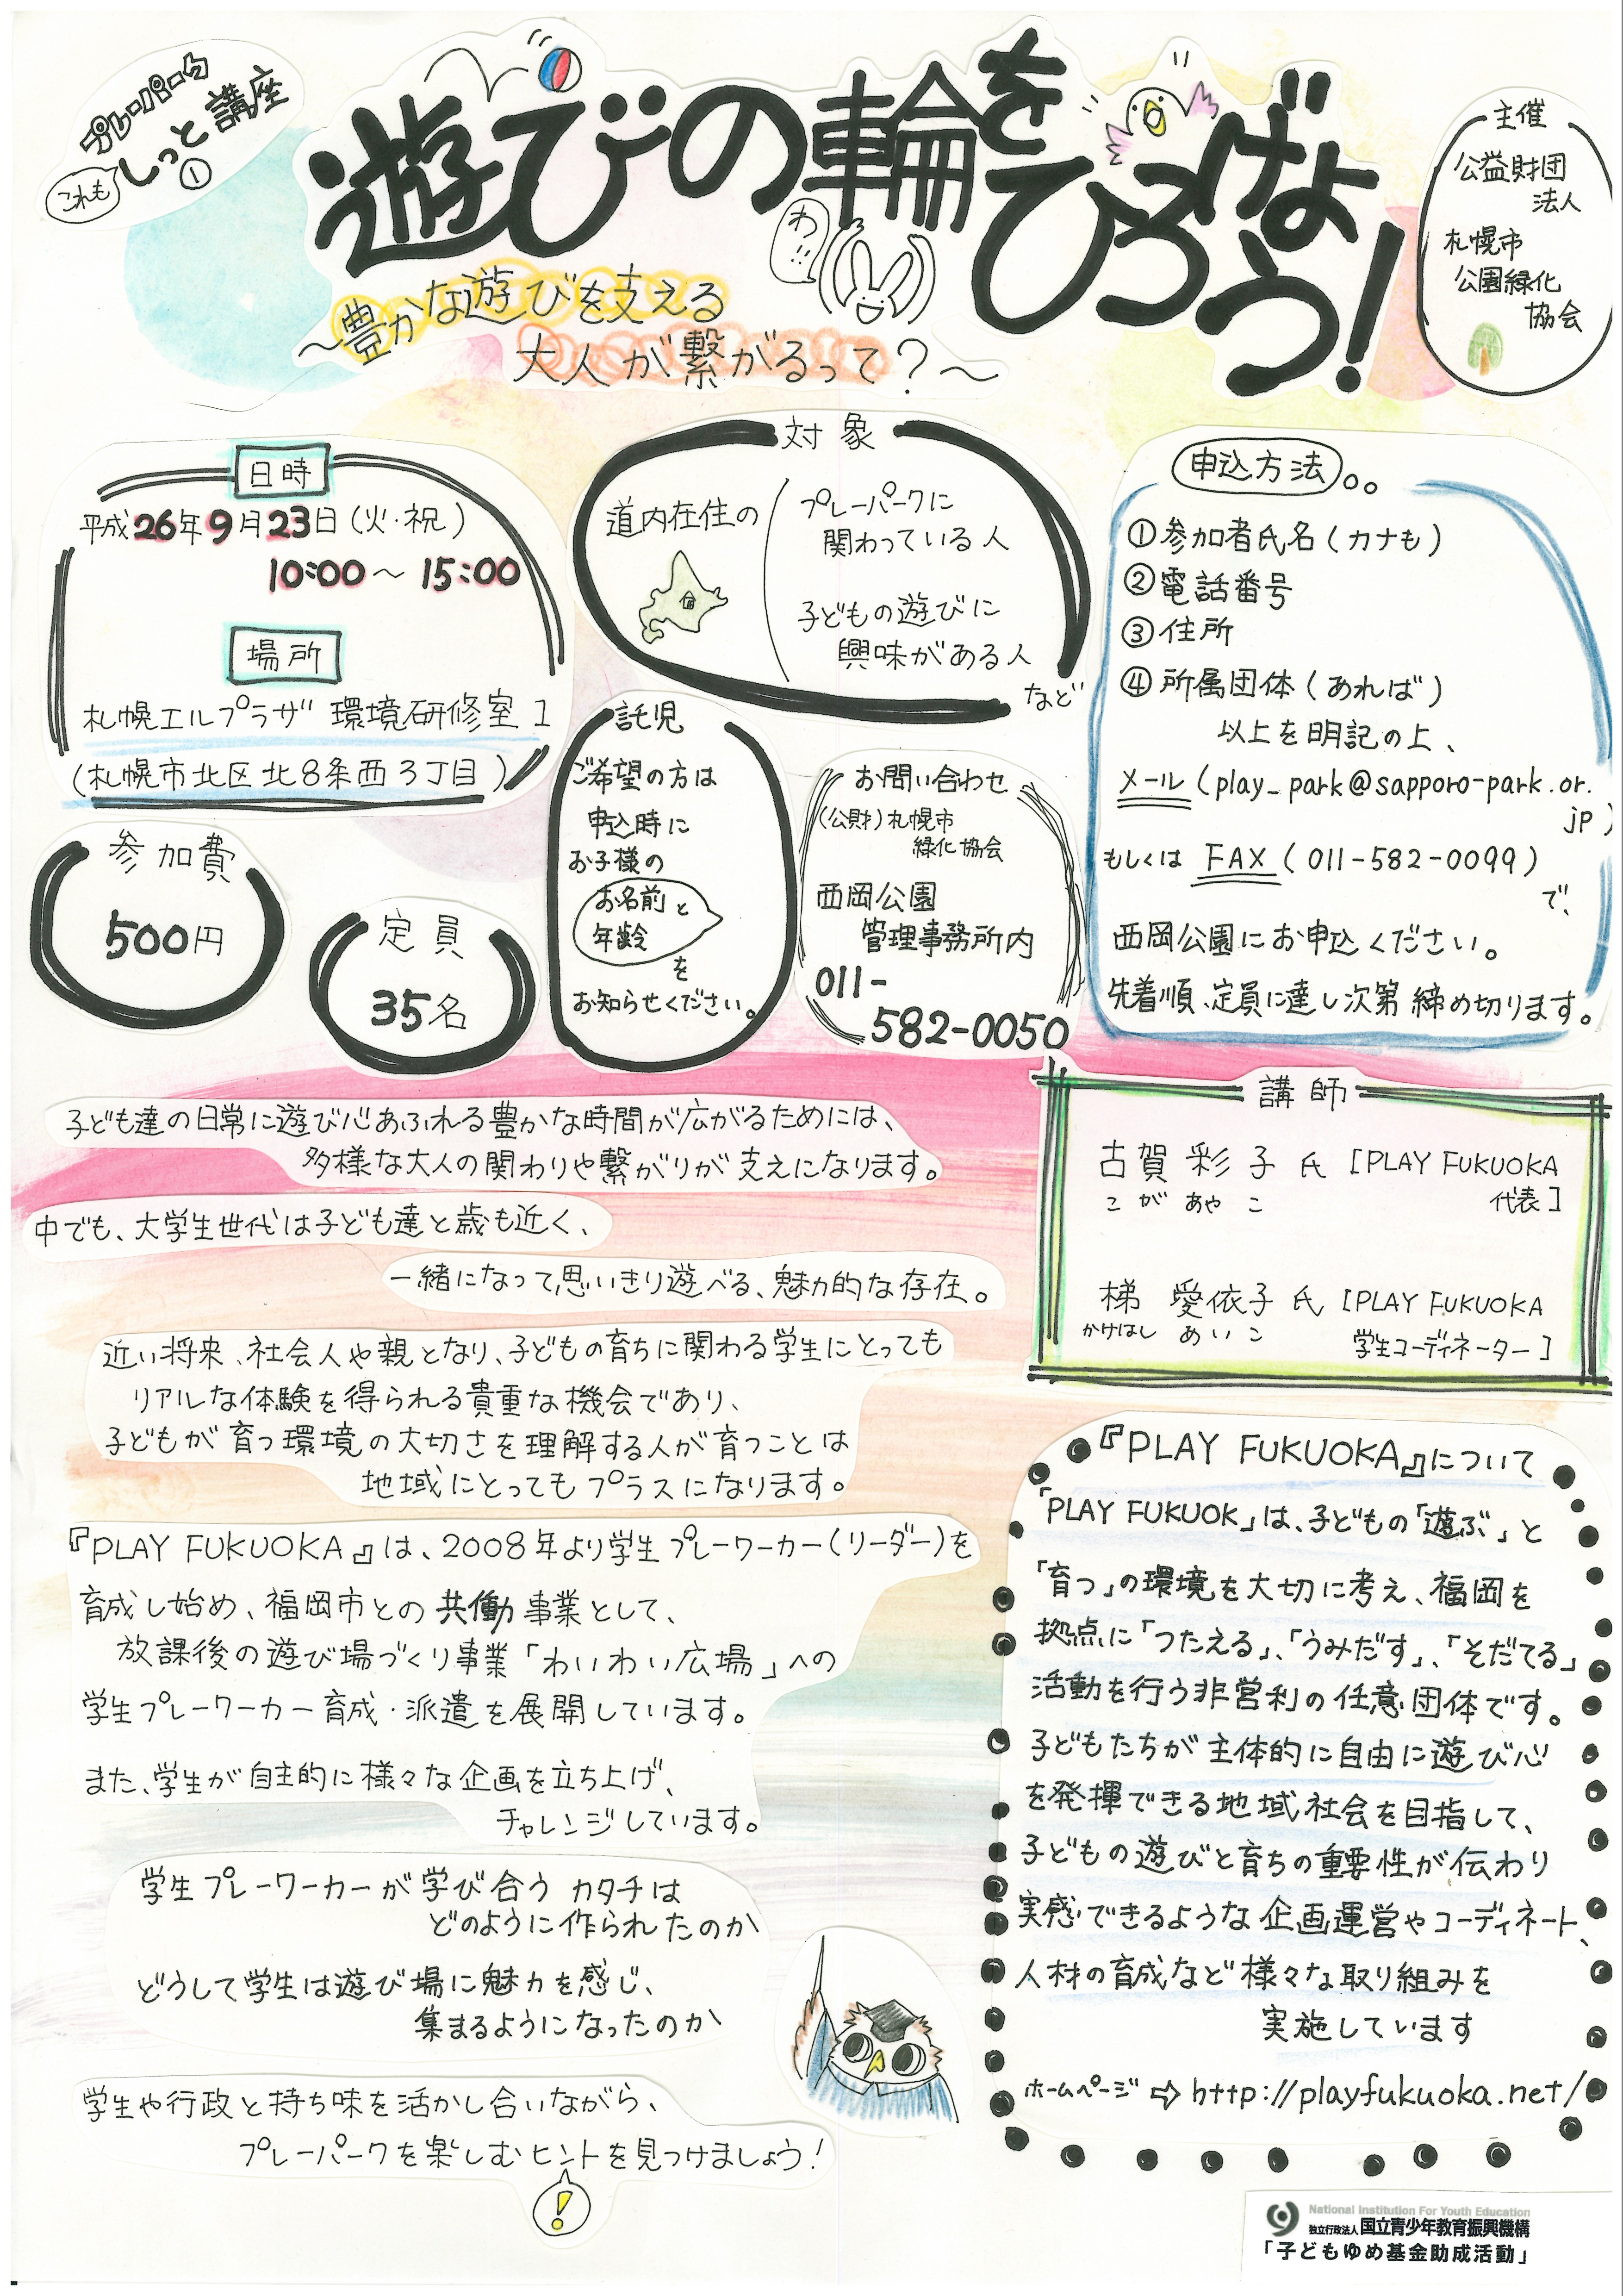 プレーパーク
これも
しっと講座
①
遊びの輪を
ひろげよう!
わ!!!
〜豊かな遊びを支える
大人が繋がるって?〜
主催
公益財団
法人
札幌市
公園緑化
協会
日時
平成26年9月23日(火・祝)
10:00〜15:00
場所
札幌エルプラザ 環境研修室1
(札幌市北区北8条西3丁目)
対象
道内在住の
プレーパークに
関わっている人
子どもの遊びに
興味がある人
など
申込方法
①参加者氏名(カナも)
②電話番号
③住所
④所属団体(あれば)
以上を明記の上、
メール(play_park@sapporo-park.or.
jp)
もしくは FAX(011-582-0099)
で、
西岡公園にお申込ください。
先着順、定員に達し次第締め切ります。
参加費
500円
定員
35名
託児
ご希望の方は
申込時に
お子様の
お名前と
年齢
を
お知らせください。
お問い合わせ
(公財)札幌市
緑化協会
西岡公園
管理事務所内
011-
582-0050
子ども達の日常に遊び心あふれる豊かな時間が広がるためには、
多様な大人の関わりや繋がりが支えになります。
中でも、大学生世代は子ども達と歳も近く、
一緒になって思いきり遊べる、魅力的な存在。
近い将来、社会人や親となり、子どもの育ちに関わる学生にとっても
リアルな体験を得られる貴重な機会であり、
子どもが育つ環境の大切さを理解する人が育つことは
地域にとってもプラスになります。
『PLAY FUKUOKA』は、2008年より学生プレーワーカー(リーダー)を
育成し始め、福岡市との共働事業として、
放課後の遊び場づくり事業「わいわい広場」への
学生プレーワーカー育成・派遣を展開しています。
また、学生が自主的に様々な企画を立ち上げ、
チャレンジしています。
学生プレーワーカーが学び合うカタチは
どのように作られたのか
どうして学生は遊び場に魅力を感じ、
集まるようになったのか
学生や行政と持ち味を活かし合いながら、
プレーパークを楽しむヒントを見つけましょう!
!
講師
古賀 彩子 氏 [PLAY FUKUOKA
こが あやこ 代表]
梯 愛依子 氏 [PLAY FUKUOKA
かけはし あいこ 学生コーディネーター]
『PLAY FUKUOKA』について
「PLAY FUKUOK」は、子どもの「遊ぶ」と
「育つ」の環境を大切に考え、福岡を
拠点に「つたえる」、「うみだす」、「そだてる」
活動を行う非営利の任意団体です。
子どもたちが主体的に自由に遊び心
を発揮できる地域社会を目指して、
子どもの遊びと育ちの重要性が伝わり
実感できるような企画運営やコーディネート、
人材の育成など様々な取り組みを
実施しています
ホームページ⇨http://playfukuoka.net/
National Institution For Youth Education
独立行政法人国立青少年教育振興機構
「子どもゆめ基金助成活動」